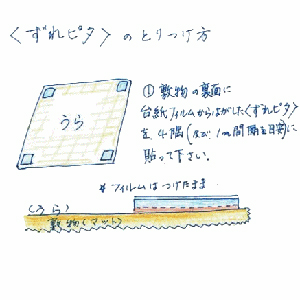 〈ずれピタ〉のとりつけ方
うら
① 敷物の裏面に
台紙フィルムからはがした〈ずれピタ〉
を4隅(及び1m間隔を目安)に
貼って下さい。
* フィルムはつけたまま
(うら)
敷物(マット)